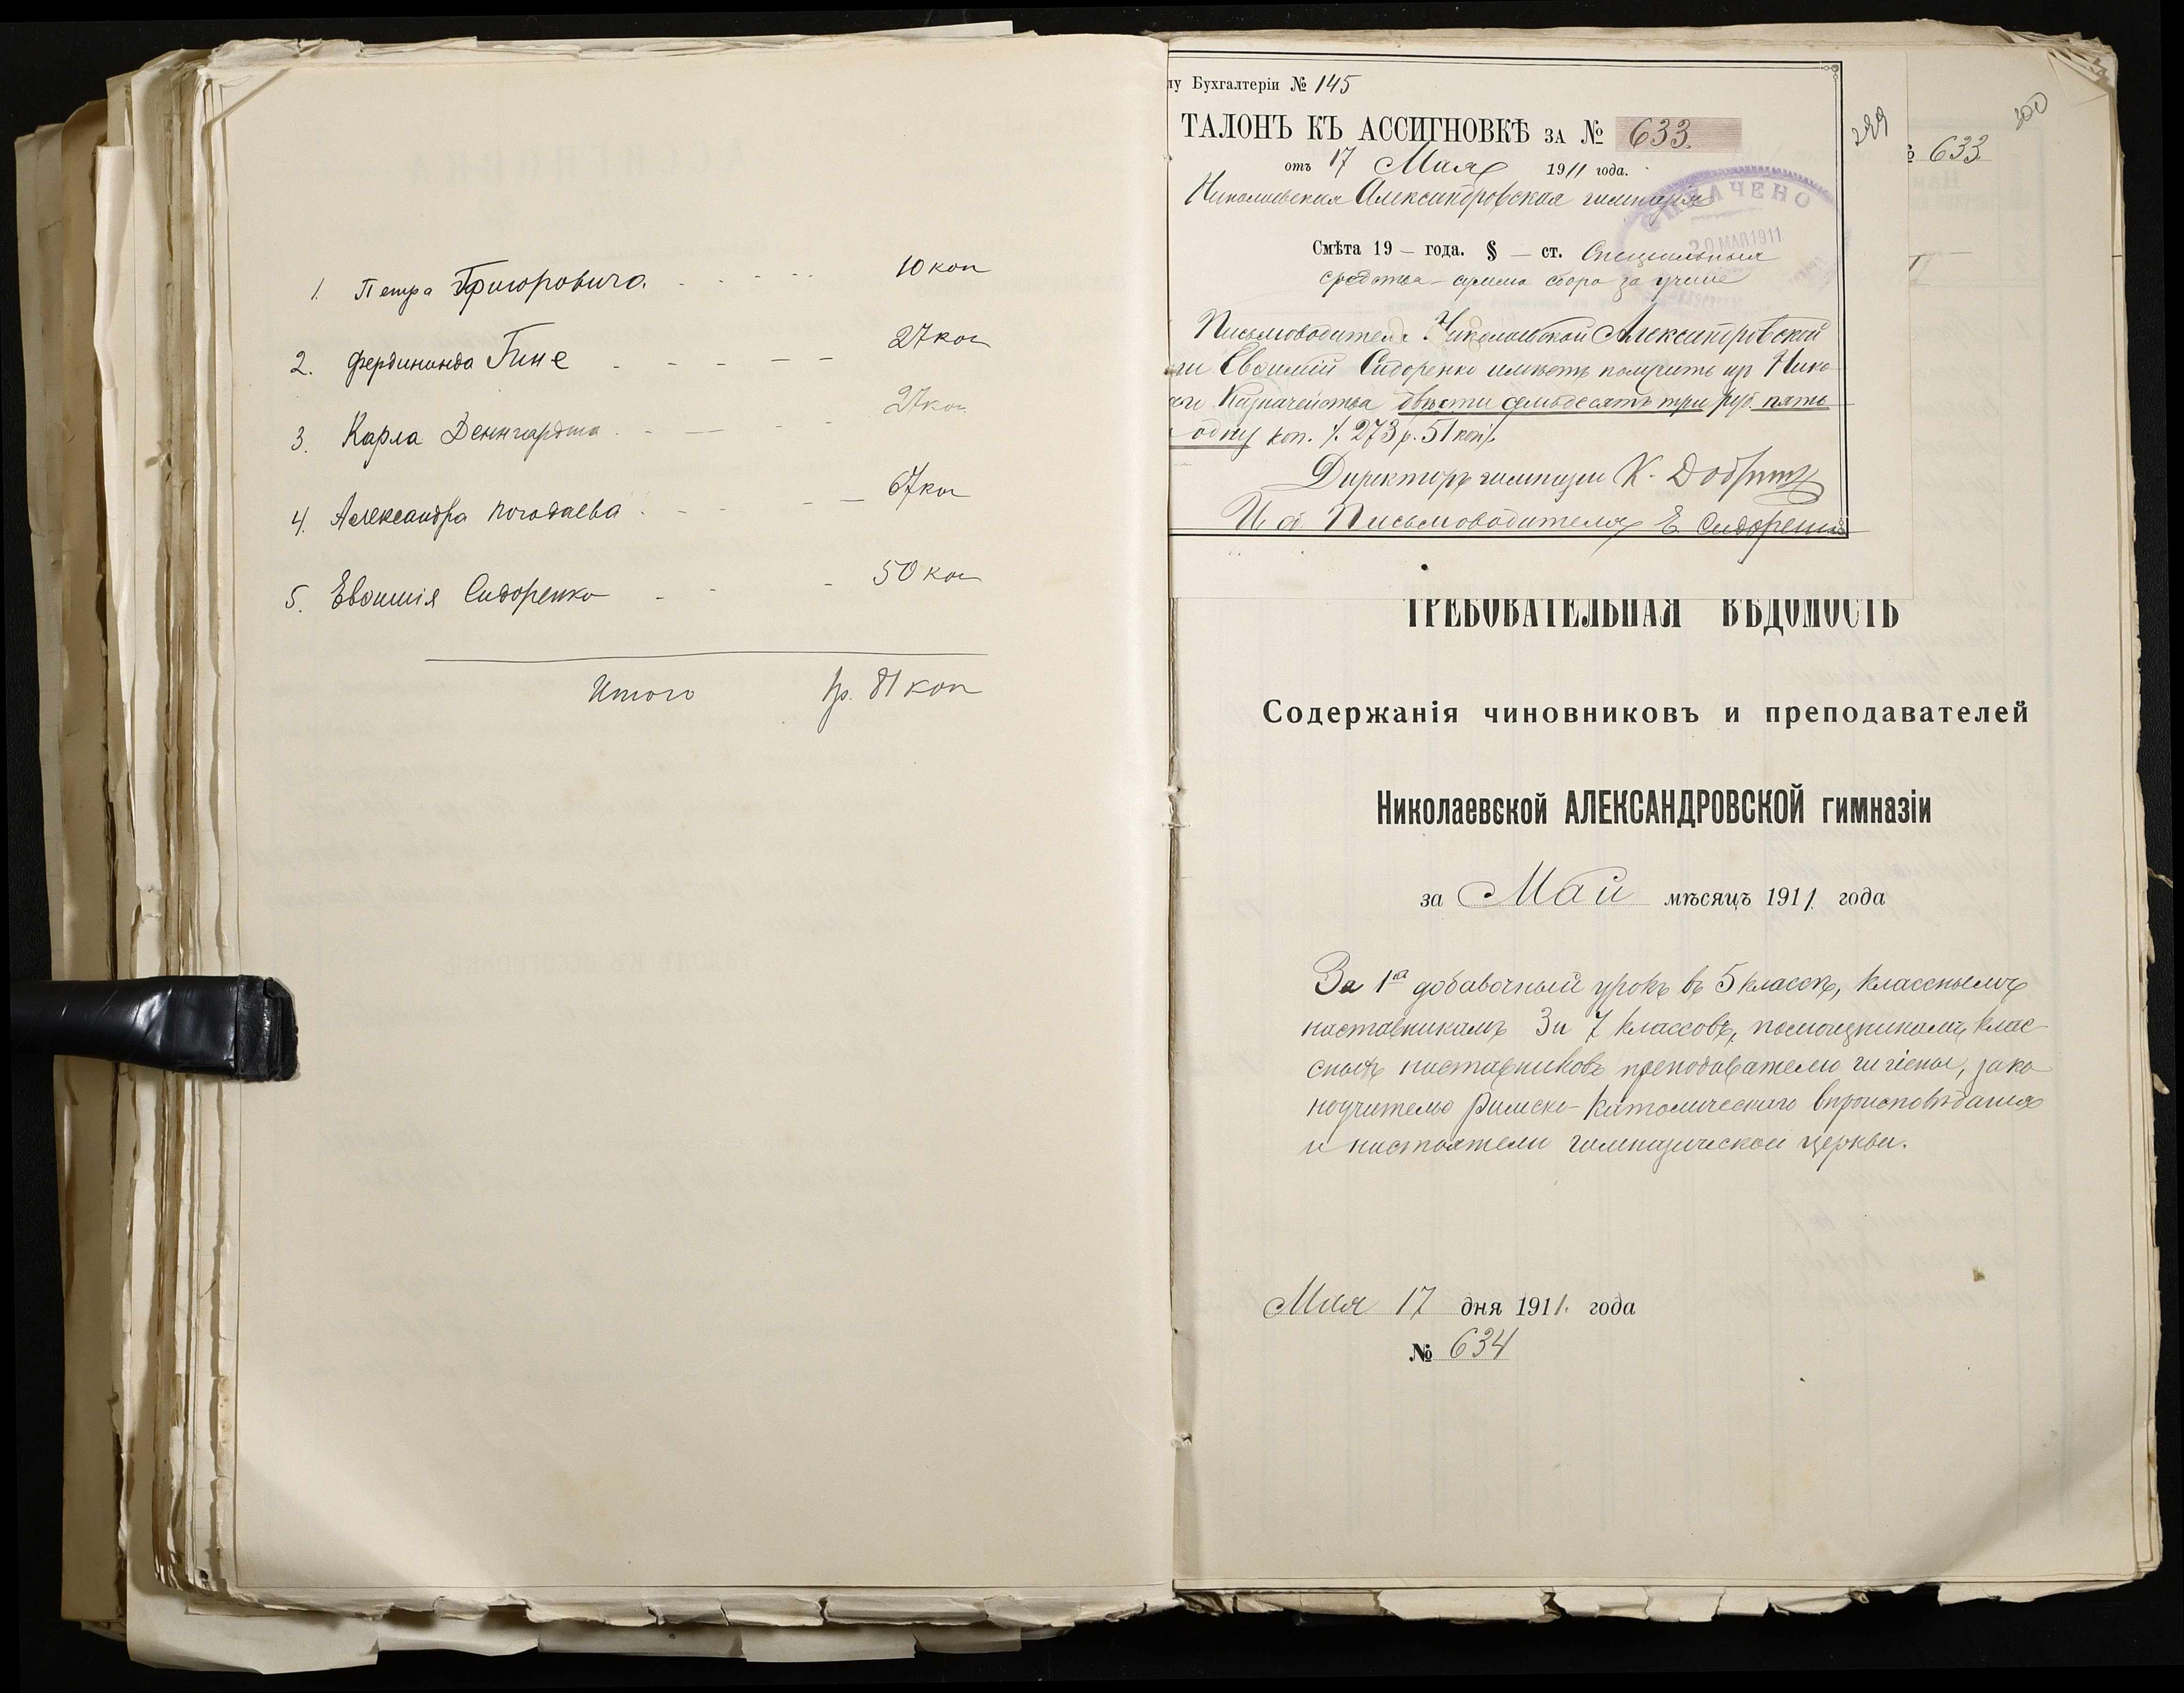 1. Петра Григоровича. 10 коп
2. Фердинанда Гине 27 коп
3. Карла Деннгардта 27 коп
4. Александра Погодаева 67 коп
5. Евѳимія Сидоренко 50 коп
Итого 1р. 81 коп
лу Бухгалтеріи № 145
ТАЛОНЪ КЪ АССИГНОВКѢ ЗА № 633.
отъ 17 Мая 1911 года.
Николаевская Александровская гимназія
Смѣта 19 — года. § — ст. Спеціальныя
средства - сумма сбора за ученіе
20 МАЯ 1911
Письмоводитель Николаевской Александровской
Евѳимій Сидоренко имѣетъ получить изъ Нико
Казначейства двѣсти семьдесятъ три руб. пять
одну коп. /. 273 р. 51 коп/.
Директоръ гимназіи К.
И. об. Письмоводителя Е. Сидоренко
299
№ 633
300
ТРЕБОВАТЕЛЬНАЯ ВѢДОМОСТЬ
Содержанія чиновниковъ и преподавателей
Николаевской АЛЕКСАНДРОВСКОЙ гимназіи
за Май мѣсяцъ 1911 года
За 1ый добавочный урокъ въ 5 классѣ, класснымъ
наставникамъ 3 и 7 классовъ, помощникамъ клас
сныхъ наставниковъ преподавателю гигіены, зако
ноучителю Римско-Католическаго вѣроисповѣданія
и настоятелю гимназической церкви.
Мая 17 дня 1911. года
№ 634